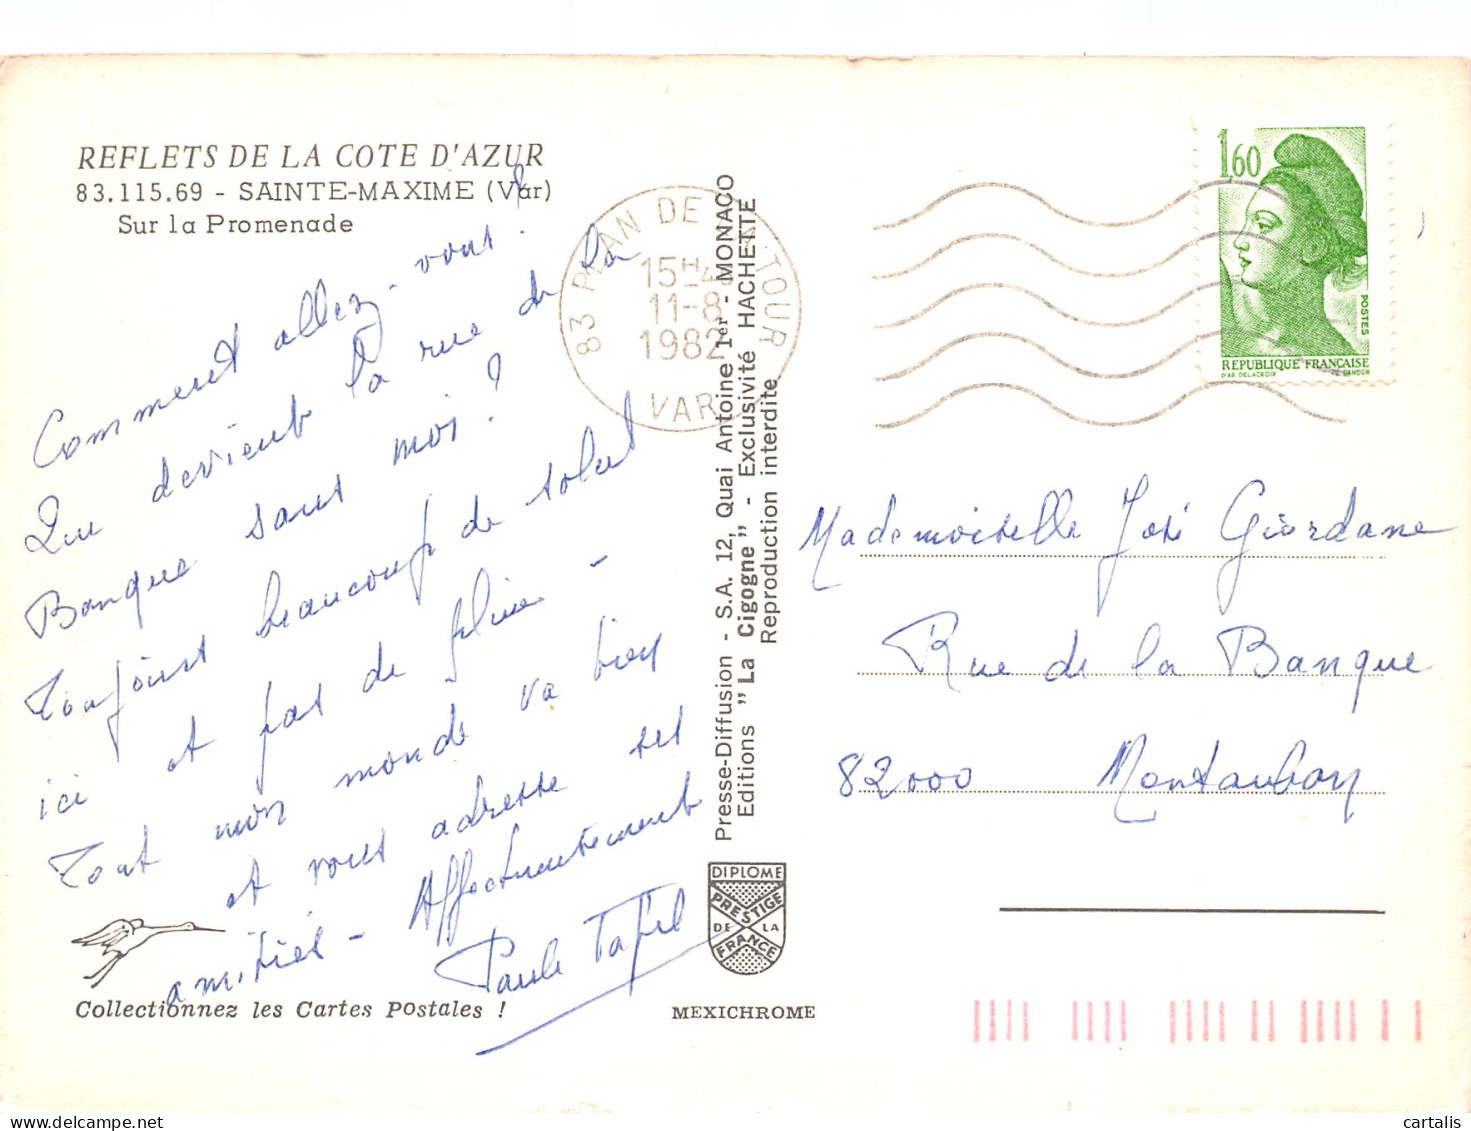 REFLETS DE LA COTE D'AZUR
83.115.69 - SAINTE-MAXIME (Var)
Sur la Promenade
Comment allez-vous?
Que devient la rue de la
Banque sans moi?
Toujours beaucoup de soleil
ici et pas de pluie -
Tout mon monde va bien
et vous adresse ses
amitiés - Affectueusement
Paule
Collectionnez les Cartes Postales !
83 PLAN DE LA TOUR
15H
11-8
1982
VAR
Presse-Diffusion - S.A. 12, Quai Antoine 1er - MONACO
Editions "La Cigogne" - Exclusivité HACHETTE
Reproduction interdite
DIPLOME
PRESTIGE
DE LA
FRANCE
MEXICHROME
1,60
POSTES
REPUBLIQUE FRANÇAISE
D'AP. DELACROIX GANDON
Mademoiselle José Giordane
Rue de la Banque
82000 Montauban
cartalis